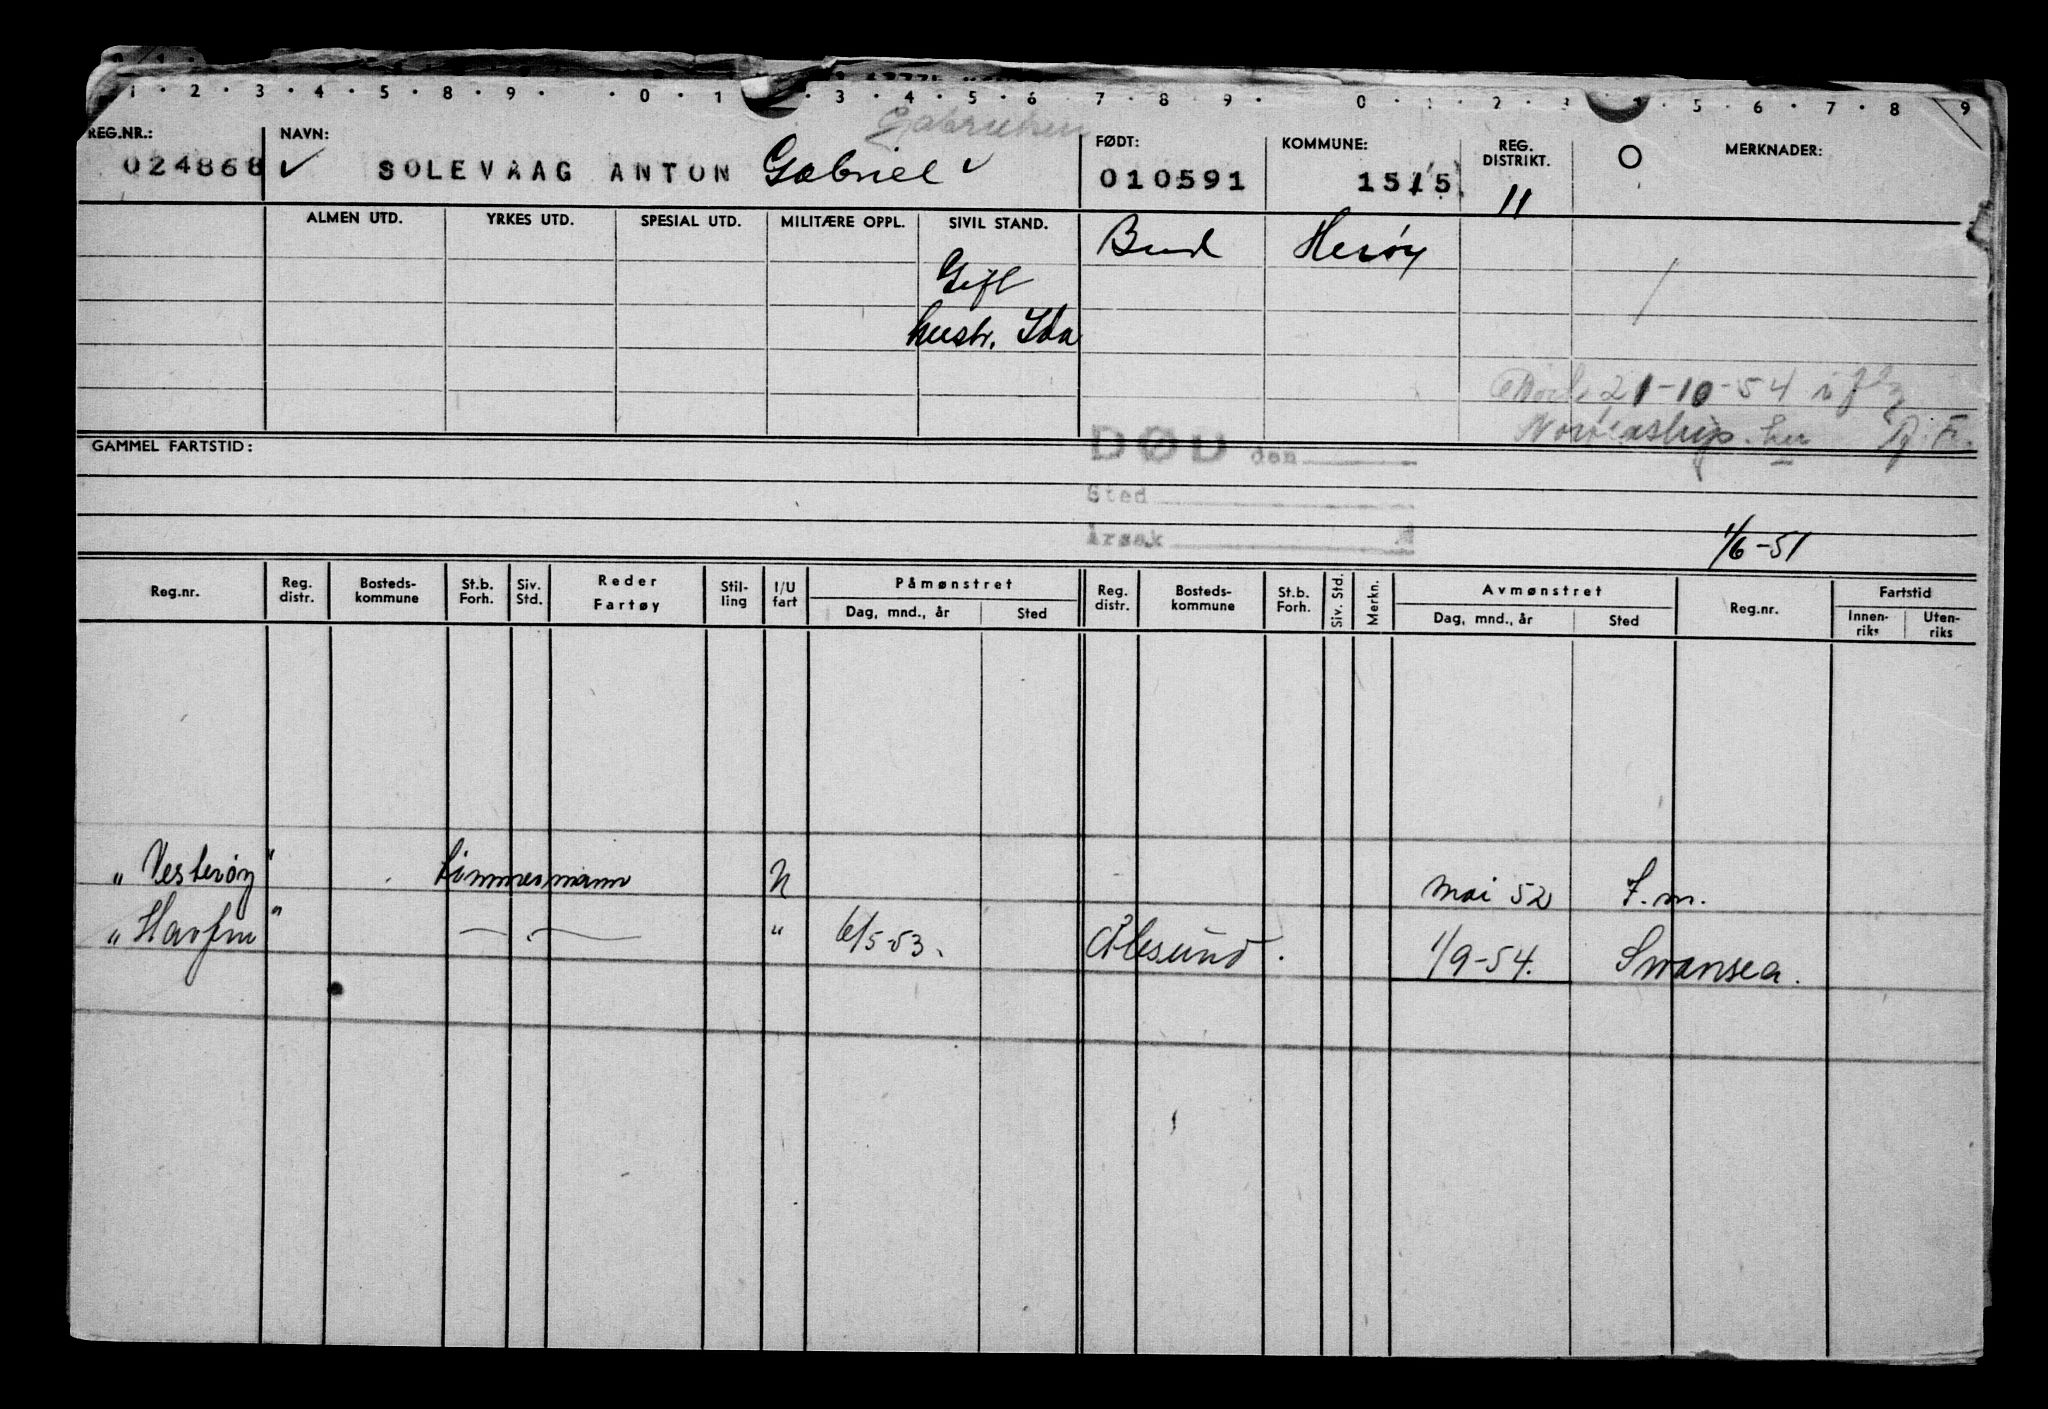 1 · 2 · 3 · 4 · 5 · 8 · 9 · · 0 · 1 · 3 · 4 · 5 · 6 7 · 8 · 9 · 0 · 1 · 2 · 3 · 5 · 6 · 7 · 8 9
REG.NR.: NAVN: FØDT: KOMMUNE: REG. DISTRIKT. O MERKNADER:
024868 ✓ SOLEVAAG ANTON Gabriel ✓ 010591 1515 11
ALMEN UTD. YRKES UTD. SPESIAL UTD. MILITÆRE OPPL. SIVIL STAND. Bud Herøy
Gift
hustr. Ida
21-10-54
GAMMEL FARTSTID: DØD den
Sted
Årsak
1/6-51
Reg.nr. Reg. distr. Bosteds- kommune St.b. Forh. Siv. Std. Reder Fartøy Stil- ling I/U fart Påmønstret Reg. distr. Bosteds- kommune St.b. Forh. Siv. Std. Merkn. Avmønstret Reg.nr. Fartstid
Dag, mnd., år Sted Dag, mnd., år Sted Innen- riks Uten- riks
„Vesterøy" timmermann U mai 52 F.m.
„Havfru" — . — " 6/5-53. Ålesund. 1/9-54. Swansea.